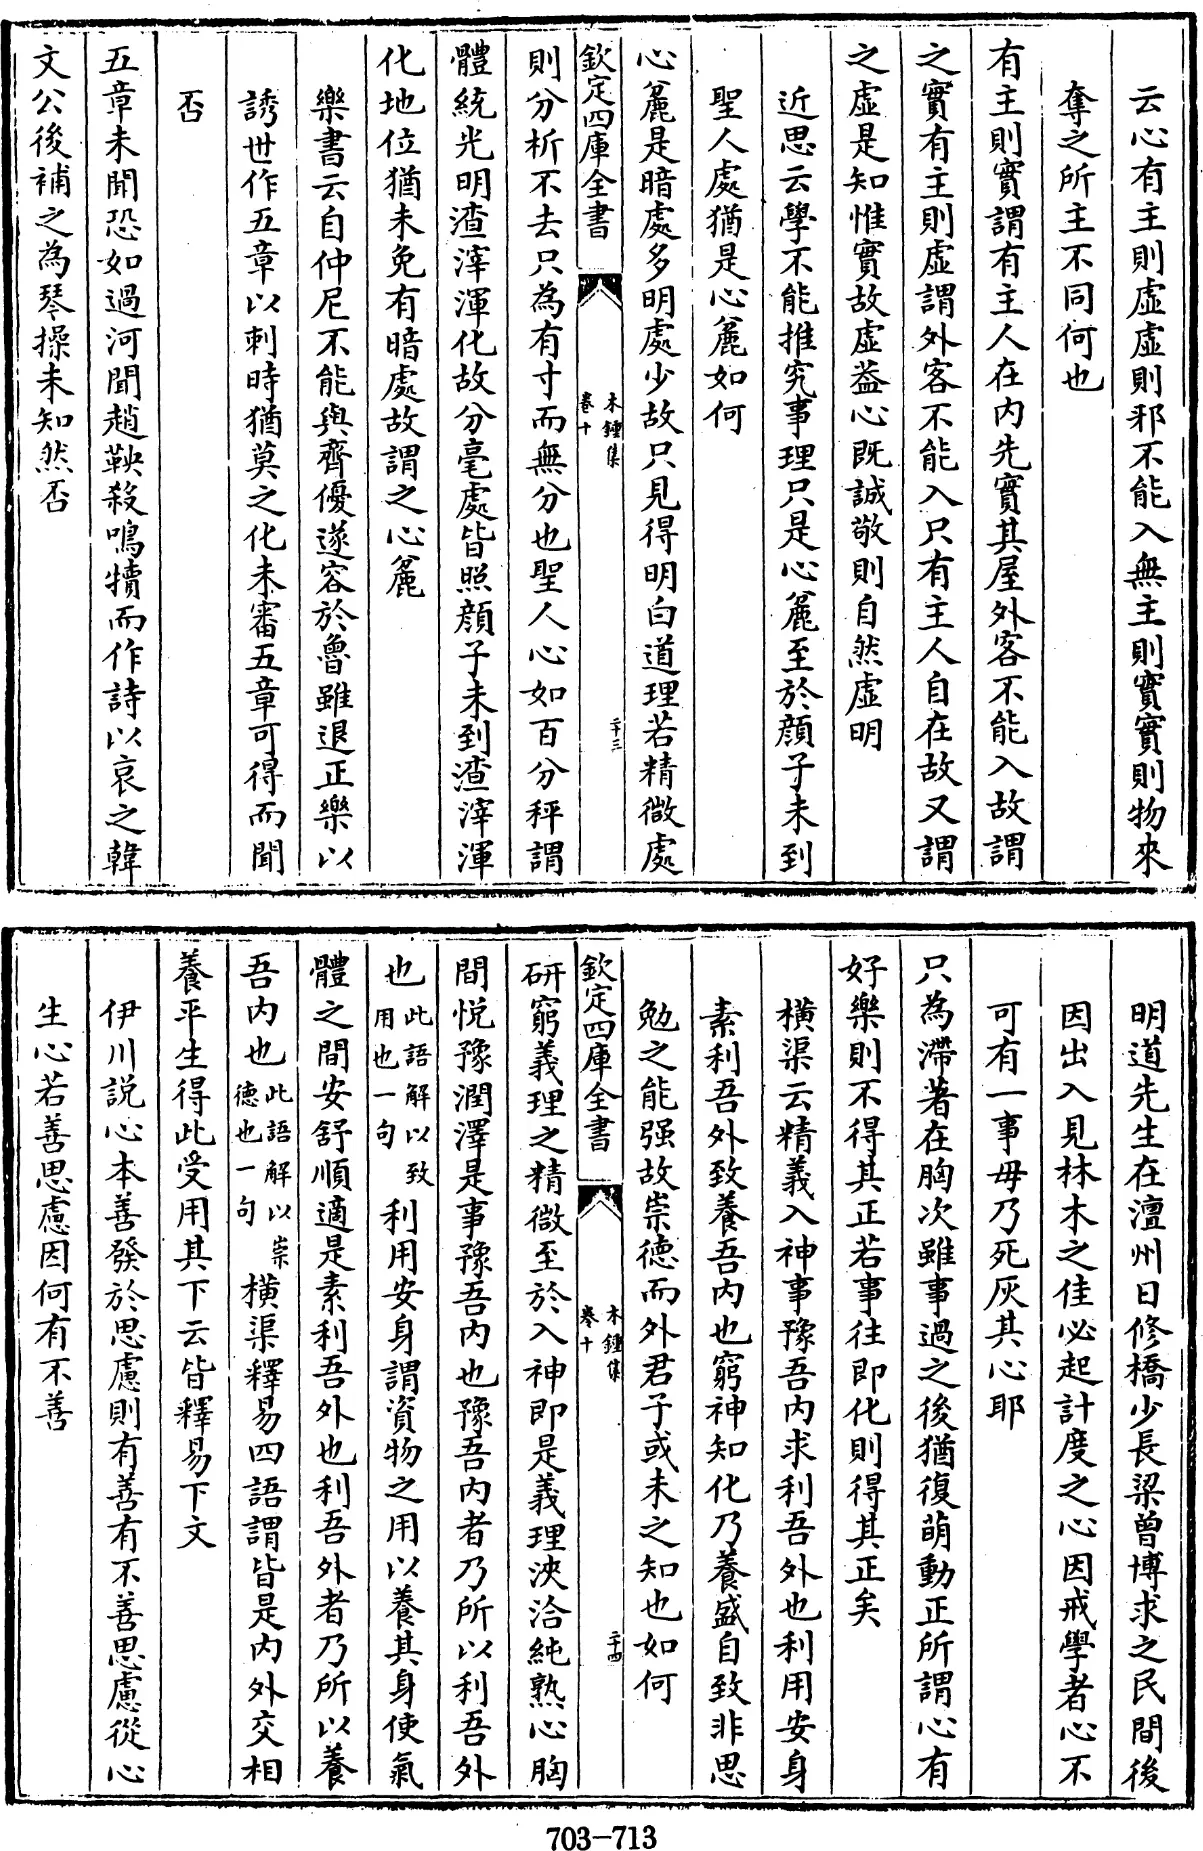 云心有主則虛虛則邪不能入無主則實實則物來
奪之所主不同何也
有主則實謂有主人在內先實其屋外客不能入故謂
之實有主則虛謂外客不能入只有主人自在故又謂
之虛是知惟實故虛葢心既誠敬則自然虛明
近思云學不能推究事理只是心麄至於顔子未到
聖人處猶是心麄如何
心麄是暗處多明處少故只見得明白道理若精微處
欽定四庫全書
木鍾集
卷十
二十三
則分析不去只為有寸而無分也聖人心如百分秤謂
體統光明渣滓渾化故分毫處皆照顔子未到渣滓渾
化地位猶未免有暗處故謂之心麄
樂書云自仲尼不能與齊優遂容於魯雖退正樂以
誘世作五章以刺時猶莫之化未審五章可得而聞
否
五章未聞恐如過河聞趙鞅殺鳴犢而作詩以哀之韓
文公後補之為琴操未知然否
明道先生在澶州日修橋少長梁曾博求之民間後
因出入見林木之佳必起計度之心因戒學者心不
可有一事毋乃死灰其心耶
只為滯著在胸次雖事過之後猶復萌動正所謂心有
好樂則不得其正若事往即化則得其正矣
橫渠云精義入神事豫吾內求利吾外也利用安身
素利吾外致養吾內也窮神知化乃養盛自致非思
勉之能强故崇德而外君子或未之知也如何
欽定四庫全書
木鍾集
卷十
二十四
研窮義理之精微至於入神即是義理浹洽純熟心胸
間悅豫潤澤是事豫吾內也豫吾內者乃所以利吾外
也此語解以致用也一句利用安身謂資物之用以養其身使氣
體之間安舒順適是素利吾外也利吾外者乃所以養
吾內也此語解以崇德也一句橫渠釋易四語謂皆是內外交相
養平生得此受用其下云皆釋易下文
伊川說心本善發於思慮則有善有不善思慮從心
生心若善思慮因何有不善
703-713